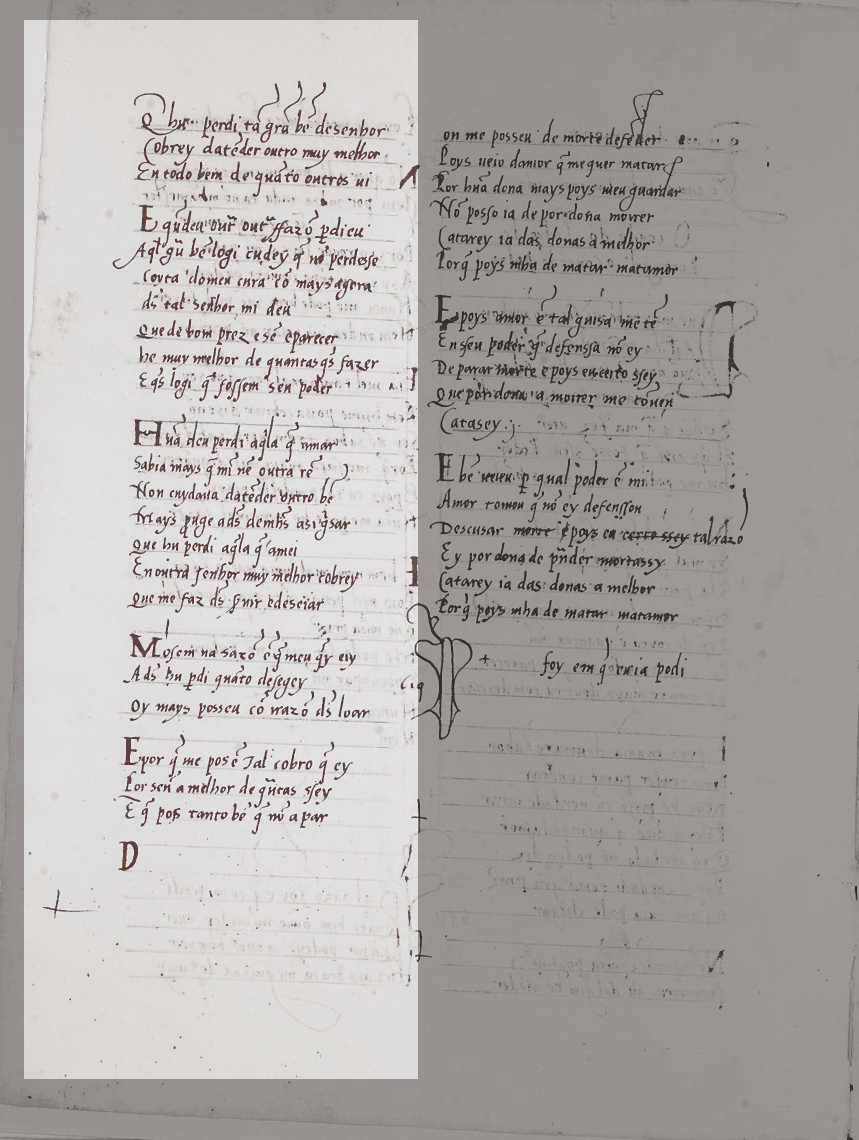 Q hu perdi tã grã bẽ desenhor
Cobrey datẽder outro muy melhor
En todo bem de quãto outros ui
E qndeu out out ffazõ pdieu
Aql gũ bẽ logi cudey q̃ nõ perdesse
couta domeu cura cõ mays agora
ds tal senhor mi deu
que de bom prez e sẽ e parecer
he muy melhor de quantas qs fazer
E qs logi q̃ fossem seu poder
Hũa deu perdi aqla q̃ amar
Sabia mays q̃ mi nẽ outra rẽ
Non cuydaua datẽder outro bẽ
Mays pruge ads demhs asi qsar
Que hu perdi aqla q̃ amei
En outra senhor muy melhor cobrey
Que me faz ds s'uir e deseiar
Mosem na sazõ ẽ q̃ meu qy eiy
A ds hu pdi quãto desegey
Oy mays posseu cõ razõ ds loar
E por q̃ me pos ẽ Tal cobro q̃ ey
Por señ a melhor de qntas ssey
E q̃ pos tanto bẽ q̃ nõ a par
D
on me posseu de morte defender
Poys ueio damor q̃ me quer matar
Por hũa dona mays poys meu guardar
Nõ posso ia de por dona morrer
Catarey ia das donas a melhor
Porq̃ poys mha de matar matamor
E poys amor ẽ tal guisa me tẽ
En seu poder q̃ defenssa nõ ey
De parar morte e poys eu certo ssey
Que por dona a morrer me cõuẽ
Catarey
E bẽ ueueu p qual poder ẽ mi
Amor tomou q̃ nõ ey defenssou
Descusar morte e poys eu certo ssey tal razõ
Ey por dona de pñder mortassy
Catarey ia das donas a melhor
Porq̃ poys mha de matar matamor
foy em q̃ eueia podi